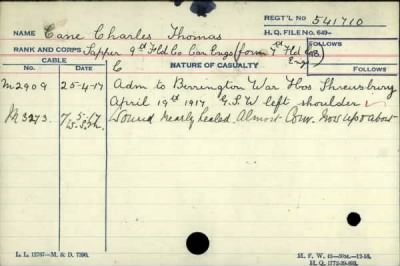 REGT'L NO 541710
NAME Cane Charles Thomas H. Q. FILE No. 649-
RANK AND CORPS Sapper 9th Fld Co Can Engs (form 7th Fld Co Engs) FOLLOWS
CABLE
No. DATE C NATURE OF CASUALTY FOLLOWS
M2909 25-4-17 Adm to Berrington War Hos Shrewsbury
April 19th 1917. G.S.W left shoulder
M3273. 7-5-17 Wound nearly healed. Almost Conv. Now up & about
L. L. 12767—M. & D. 7390. M. F. W. 42—50M.—12-16.
H. Q. 1772-39-893.